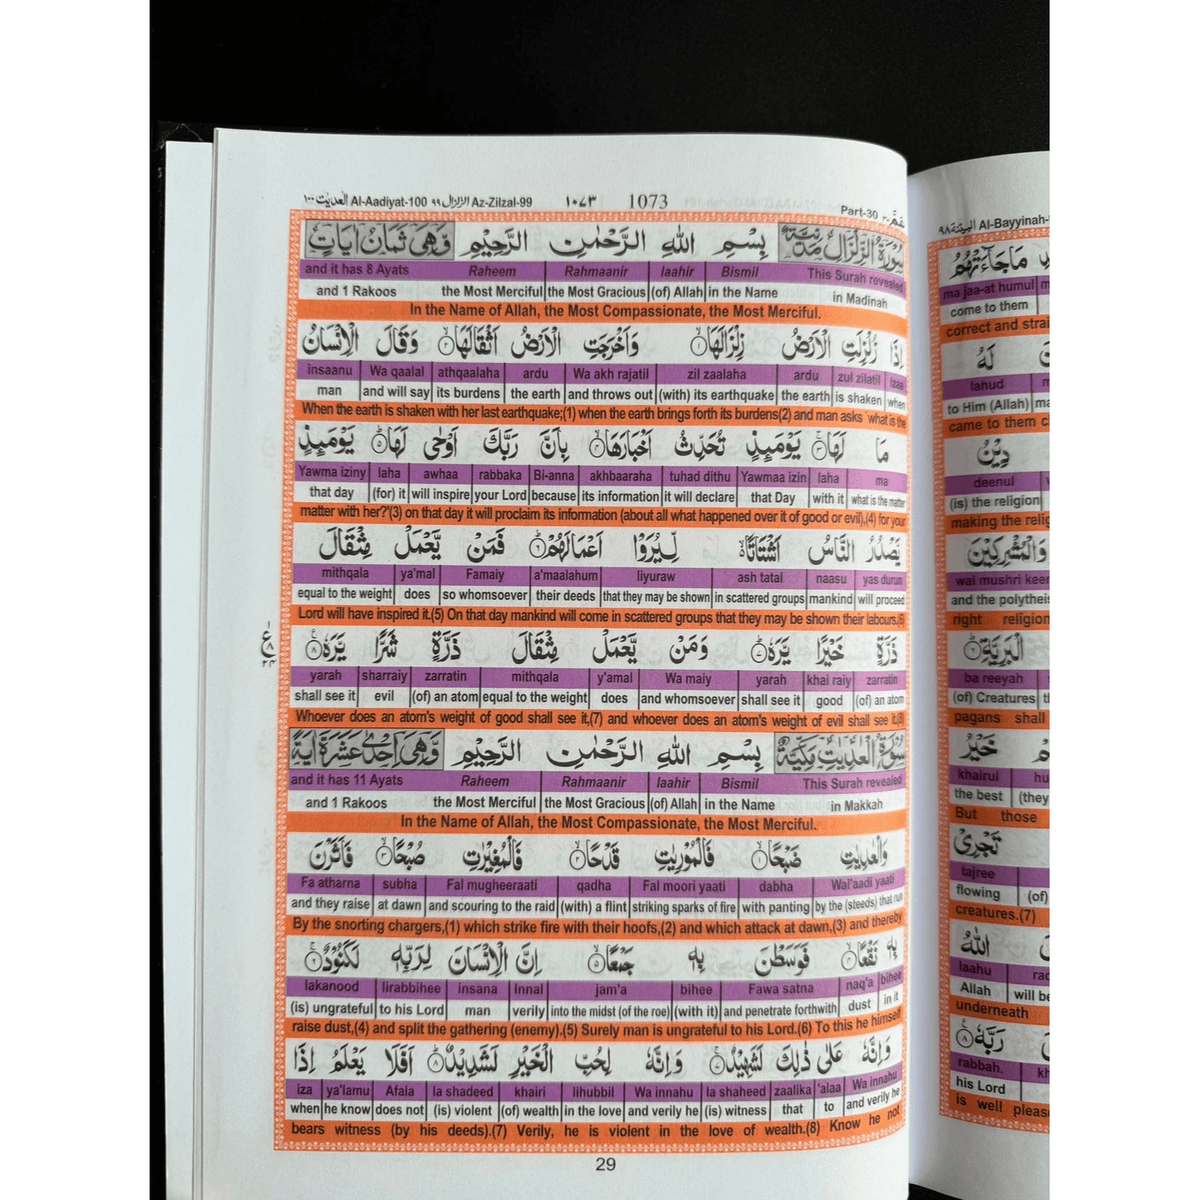 ١٠٠ العديت Al-Aadiyat-100 ٩٩ الزلزال Az-Zilzal-99 ١٠٧٣ 1073 Part-30 عمّ ٣٠
سُوْرَةُ الزِّلْزَالِ مَدَنِيَّةٌ بِسْمِ اللهِ الرَّحْمٰنِ الرَّحِيْمِ وَهِىَ ثَمَانُ اٰيَاتٍ
and it has 8 Ayats Raheem Rahmaanir laahir Bismil This Surah revealed
and 1 Rakoos the Most Merciful the Most Gracious (of) Allah in the Name in Madinah
In the Name of Allah, the Most Compassionate, the Most Merciful.
اِذَا زُلْزِلَتِ الْاَرْضُ زِلْزَالَهَا ۙ﴿١﴾ وَاَخْرَجَتِ الْاَرْضُ اَثْقَالَهَا ۙ﴿٢﴾ وَقَالَ الْاِنْسَانُ
insaanu Wa qaalal athqaalaha ardu Wa akh rajatil zil zaalaha ardu zul zilatil Izaa
man and will say its burdens the earth and throws out (with) its earthquake the earth is shaken when
When the earth is shaken with her last earthquake;(1) when the earth brings forth its burdens(2) and man asks 'what is the
مَا لَهَا ۚ﴿٣﴾ يَوْمَئِذٍ تُحَدِّثُ اَخْبَارَهَا ۙ﴿٤﴾ بِاَنَّ رَبَّكَ اَوْحٰى لَهَا ؕ﴿٥﴾ يَوْمَئِذٍ
Yawma iziny laha awhaa rabbaka Bi-anna akhbaaraha tuhad dithu Yawmaa izin laha ma
that day (for) it will inspire your Lord because its information it will declare that Day with it what is the matter
matter with her?'(3) on that day it will proclaim its information (about all what happened over it of good or evil),(4) for your
يَّصْدُرُ النَّاسُ اَشْتَاتًا ۙ لِّيُرَوْا اَعْمَالَهُمْ ؕ﴿٦﴾ فَمَنْ يَّعْمَلْ مِثْقَالَ
mithqala ya'mal Famaiy a'maalahum liyuraw ash tatal naasu yas durun
equal to the weight does so whomsoever their deeds that they may be shown in scattered groups mankind will proceed
Lord will have inspired it.(5) On that day mankind will come in scattered groups that they may be shown their labours.(6)
ذَرَّةٍ خَيْرًا يَّرَهٗ ؕ﴿٧﴾ وَمَنْ يَّعْمَلْ مِثْقَالَ ذَرَّةٍ شَرًّا يَّرَهٗ ۧ﴿٨﴾
yarah sharraiy zarratin mithqala y'amal Wa maiy yarah khai raiy zarratin
shall see it evil (of) an atom equal to the weight does and whomsoever shall see it good (of) an atom
Whoever does an atom's weight of good shall see it,(7) and whoever does an atom's weight of evil shall see it.(8)
سُوْرَةُ الْعٰدِيٰتِ مَكِّيَّةٌ بِسْمِ اللهِ الرَّحْمٰنِ الرَّحِيْمِ وَّهِىَ اِحْدٰى عَشَرَةَ اٰيَةً
and it has 11 Ayats Raheem Rahmaanir laahir Bismil This Surah revealed
and 1 Rakoos the Most Merciful the Most Gracious (of) Allah in the Name in Makkah
In the Name of Allah, the Most Compassionate, the Most Merciful.
وَالْعٰدِيٰتِ ضَبْحًا ۙ﴿١﴾ فَالْمُوْرِيٰتِ قَدْحًا ۙ﴿٢﴾ فَالْمُغِيْرٰتِ صُبْحًا ۙ﴿٣﴾ فَاَثَرْنَ
Fa atharna subha Fal mugheeraati qadha Fal moori yaati dabha Wal'aadi yaati
and they raise at dawn and scouring to the raid (with) a flint striking sparks of fire with panting by the (steeds) that run
By the snorting chargers,(1) which strike fire with their hoofs,(2) and which attack at dawn,(3) and thereby
بِهٖ نَقْعًا ۙ﴿٤﴾ فَوَسَطْنَ بِهٖ جَمْعًا ۙ﴿٥﴾ اِنَّ الْاِنْسَانَ لِرَبِّهٖ لَكَنُوْدٌ ۚ﴿٦﴾
lakanood lirabbihee insana Innal jam'a bihee Fawa satna naq'a bihee
(is) ungrateful to his Lord man verily into the midst (of the roe) (with it) and penetrate forthwith dust in it
raise dust,(4) and split the gathering (enemy).(5) Surely man is ungrateful to his Lord.(6) To this he himself
وَاِنَّهٗ عَلٰى ذٰلِكَ لَشَهِيْدٌ ۚ﴿٧﴾ وَاِنَّهٗ لِحُبِّ الْخَيْرِ لَشَدِيْدٌ ؕ﴿٨﴾ اَفَلَا يَعْلَمُ اِذَا
iza ya'lamu Afala la shadeed khairi lihubbil Wa innahu la shaheed zaalika 'alaa Wa innahu
when he know does not (is) violent (of) wealth in the love and verily he (is) witness that to and verily he
bears witness (by his deeds).(7) Verily, he is violent in the love of wealth.(8) Know he not
29
٩٨ البينة Al-Bayyinah-
مَا جَآءَتْهُمُ
ma jaa-at humul
come to them
correct and strai
لَهُ
lahud
to Him (Allah)
came to them c
دِيْنُ
deenul
(is) the religion
making the relig
وَالْمُشْرِكِيْنَ
wal mushri keer
and the polytheis
right religion
الْبَرِيَّةِ ؕ﴿٦﴾
ba reeyah
(of) Creatures
pagans shall
خَيْرُ
khairul
the best (they
But those
تَجْرِىْ
tajree
flowing (of)
creatures.(7)
اللهُ
laahu
Allah will be
underneath
رَبَّهٗ ۧ﴿٨﴾
rabbah.
his Lord
is well please